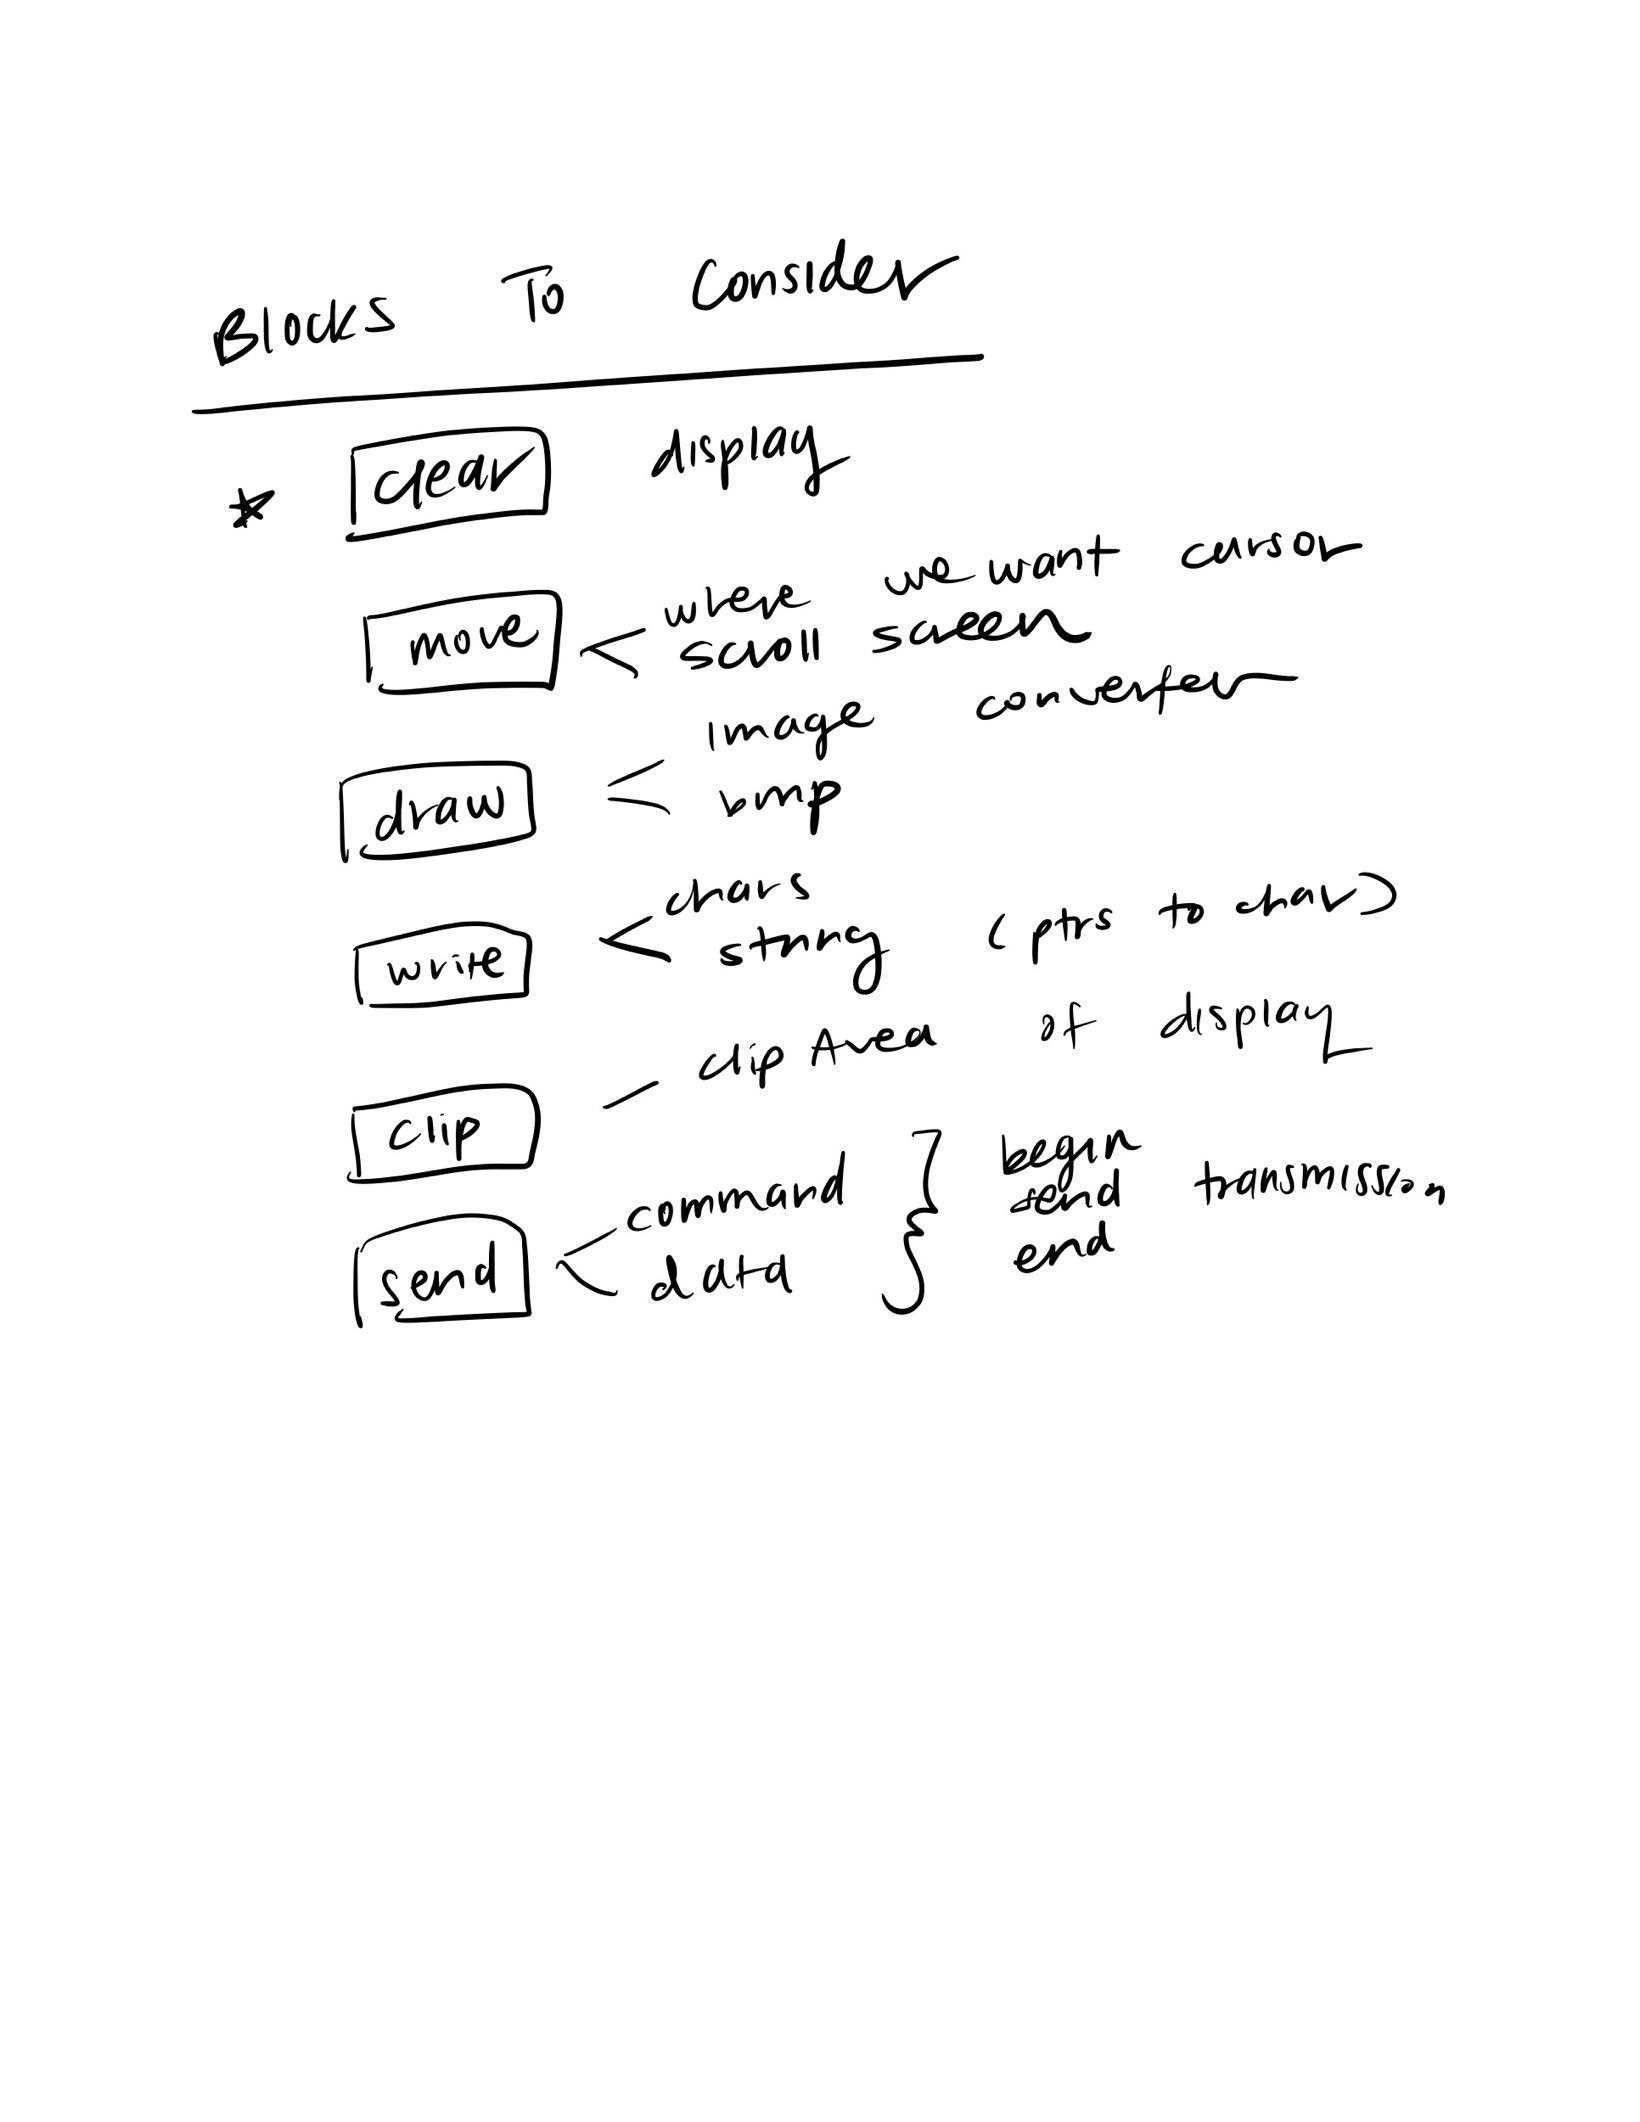 Blocks To Consider
* clear display
move < where we want cursor
scroll screen
draw < image converter
bmp
write < chars
string (ptrs to char)
clip - clip Area of display
send < command } begin
data send transmission
end